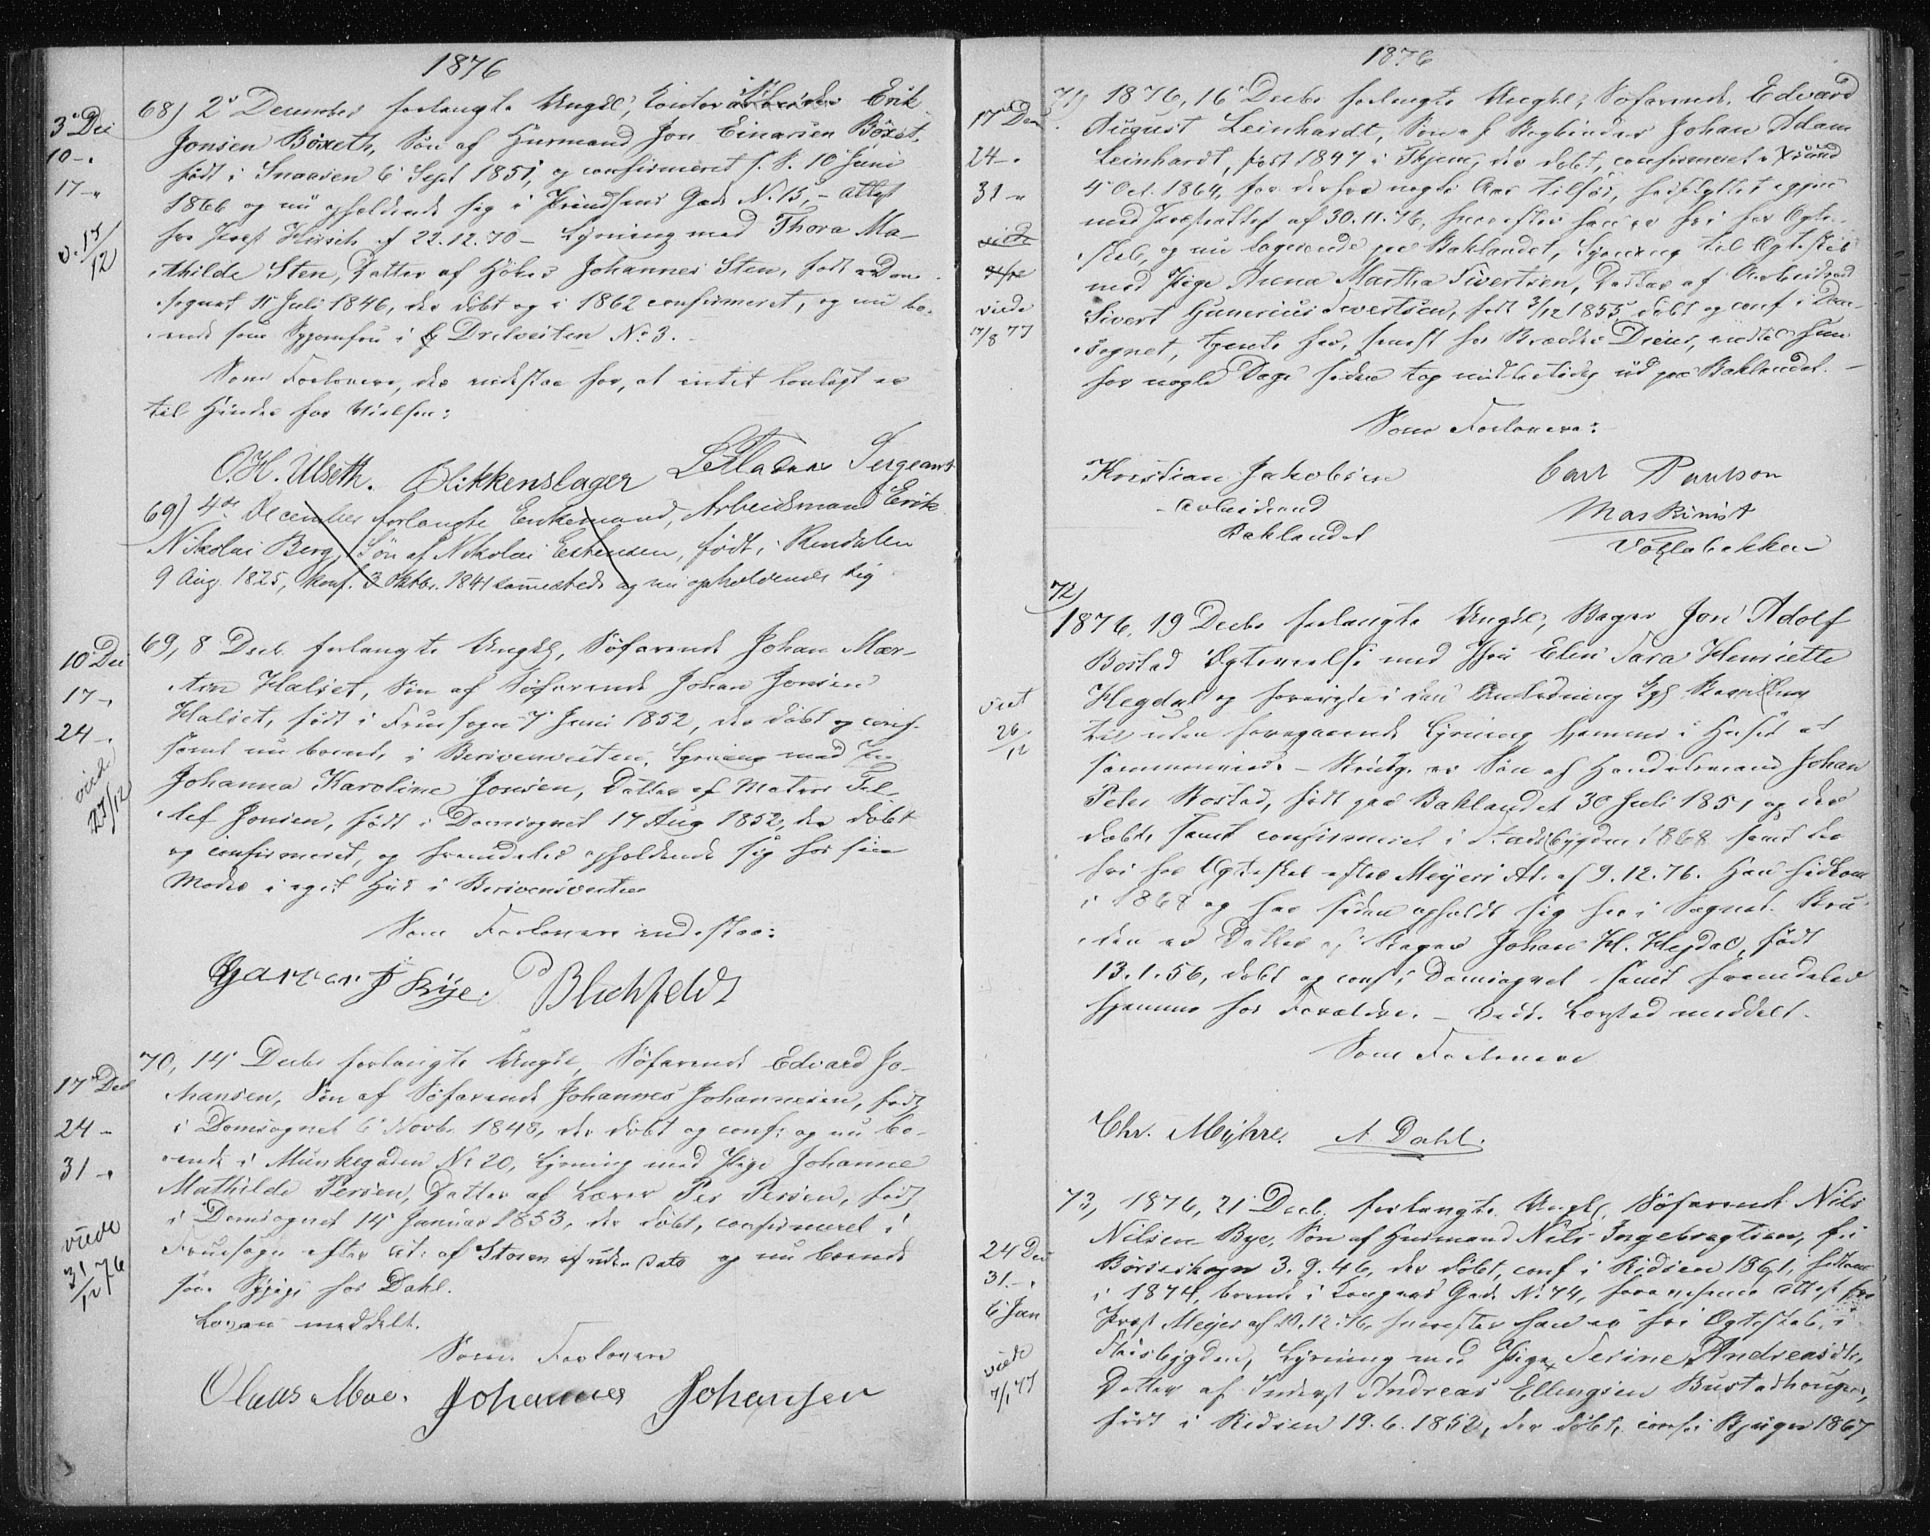 1876
3 Dec
10 -
17 -
v. 17/12
68) 2 December forlangte Ungkl, Erik
Jonsen Böxeth, Søn af Huusmand Jon Einarsen Böxet,
født i Snaasen 6 Sept 1851, og confirmeret s. S. 10 Juni
1866 og nu opholdende sig i Prindsens Gade N. 15, - Attest
fra Præst Hirsch af 22.12.70 - Lysning med Thora Ma-
thilde Sten, Datter af Høker Johannes Sten, født i Dom-
sognet 11 Juli 1846, der døbt og i 1862 confirmeret, og nu bo-
ende som Syjomfru i Dreiersten No 3.
Som Forlovere, der indestaa for, at intet lovligt er
til Hinder for Vielsen:
O. H. Ulseth. Blikkenslager Sergeant
69) 4de December forlangte Enkemand, Arbeidsmand Erik
Nikolai Berg, Søn af Nikolai Estensen, født i Rendalen
9 Aug. 1825, konf. 3 Oktbr. 1841 sammesteds og nu opholdende sig
10 Dec
17 -
24 -
viede
27/12
69, 8 Decb. forlangte Ungkl, Søfarende Johan Mar-
tin Halset, Søn af Søfarende Johan Jonsen
Halset, født i Fruesogn 7 Juni 1852, der døbt og conf.
samt nu boende i Lysning med
Johanna Karoline Jonsen, Datter af Matros
Jonsen, født i Domsognet 17 Aug 1852, der døbt
og confirmeret, og fremdeles opholdende sig hos sin
Moder i eget Hus i
Som Forlovere indestaa:
Rye. P Blichfeldt
17 Dec
24 -
31 -
viede
31/12 76
70, 14 Decbr forlangte Ungkl, Søfarende Edvard Jo-
hansen, Søn af Søfarende Johannes Johannesen, født
i Domsognet 6 Novbr. 1848, der døbt og conf. og nu bo-
ende i Munkegaden No 20, Lysning med Pige Johanne
Mathilde Persen, Datter af Per Persen, født
i Domsognet 14 Januar 1853, der døbt, confirmeret i
Fruesogn efter At. af Storm af uden Dato og nu boende
som Sypige hos Dahl.
Loven meddelt.
Som Forlovere
Olaus Moe. Johannes Johansen
1876
17 Dec
24 -
31 -
viede
viede
17/8 77
71) 1876, 16 Decbr forlangte Ungkl, Søfarende Edvard
August Leinhardt, Søn af Bogbinder Johan Adam
Leinhardt, født 1847 i Thjem, der døbt, confirmeret i
4 Oct. 1864, for derfra nogle Aar tilsøs,
med Præsteattest af 30.11.76, hvorefter han er fri for Ægte-
skab, og nu logerende paa Baklandet, Lysning til Ægteskab
med Pige Anna Martha Sivertsen, Datter af Arbeidsmd
Sivert Gunerius Sivertsen, født 3/12 1855, døbt og conf i Dom-
sognet, tjente her, senest hos Dreier, indtil hun
for nogle Dage siden tog midlertidig ud paa Baklandet.
Som Forlovere:
Kristian Jakobsen
Arbeidsmd
Baklandet
Carl Paulson
Maskinist
Voldabakken
72)
viet
26/12
1876, 19 Decbr forlangte Ungkl, Bager Jon Adolf
Bostad Ægtevielse med Jfr Elen Sara Henriette
Hegdal og
uden foregaaende Lysning hjemme i Huset at
sammenvies. - Brudg. er Søn af Handelsmand Johan
Peter Bostad, født paa Baklandet 30 Juli 1851 og der
døbt, samt confirmeret i Stadsbygden 1868 samt der
fri for Ægteskab efter Meyers At. af 9.12.76. Han hidkom
i 1868 og har siden opholdt sig her i Sognet. Bru-
den er Datter af Bager Johan H. Hegdal, født
13.1.56, døbt og conf i Domsognet samt fremdeles
hjemme hos Forældre. - meddelt.
Som Forlovere
Chr. Myhre. A. Dahl.
24 Dec
31 -
6 Jan
viede
7/1 77
73, 1876, 21 Decb. forlangte Ungkl. Søfarende Nils
Nilsen Bye, Søn af Husmand Nils Ingebregtsen, f. i
Börseskogn 3.9.46, der døbt, conf i Ridsen 1861, hidkom
i 1874, boende i Kongens Gade No 74, forevisende Attest fra
Præst Meyer af 10.12.76, hvorefter han er fri Ægteskab, i
Lysning med Pige Serine Andreasdtr,
Datter af Inderst Andreas Ellingsen Bustadhougen,
født i Ridsen 19.6.1852, der døbt, conf. i Bjugn 1867